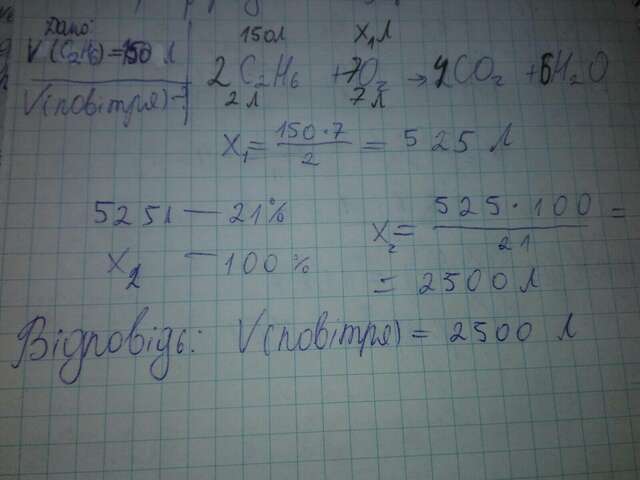 Дано:
V(C₂H₆)=150 л
V(повітря)-?
150л x₁л
2C₂H₆ +7O₂ → 4CO₂ +6H₂O
2л 7л
x₁= 150·7 / 2 = 525 л
525л — 21%
x₂ — 100%
x₂= 525·100 / 21 =
= 2500 л
Відповідь: V(повітря) = 2500 л